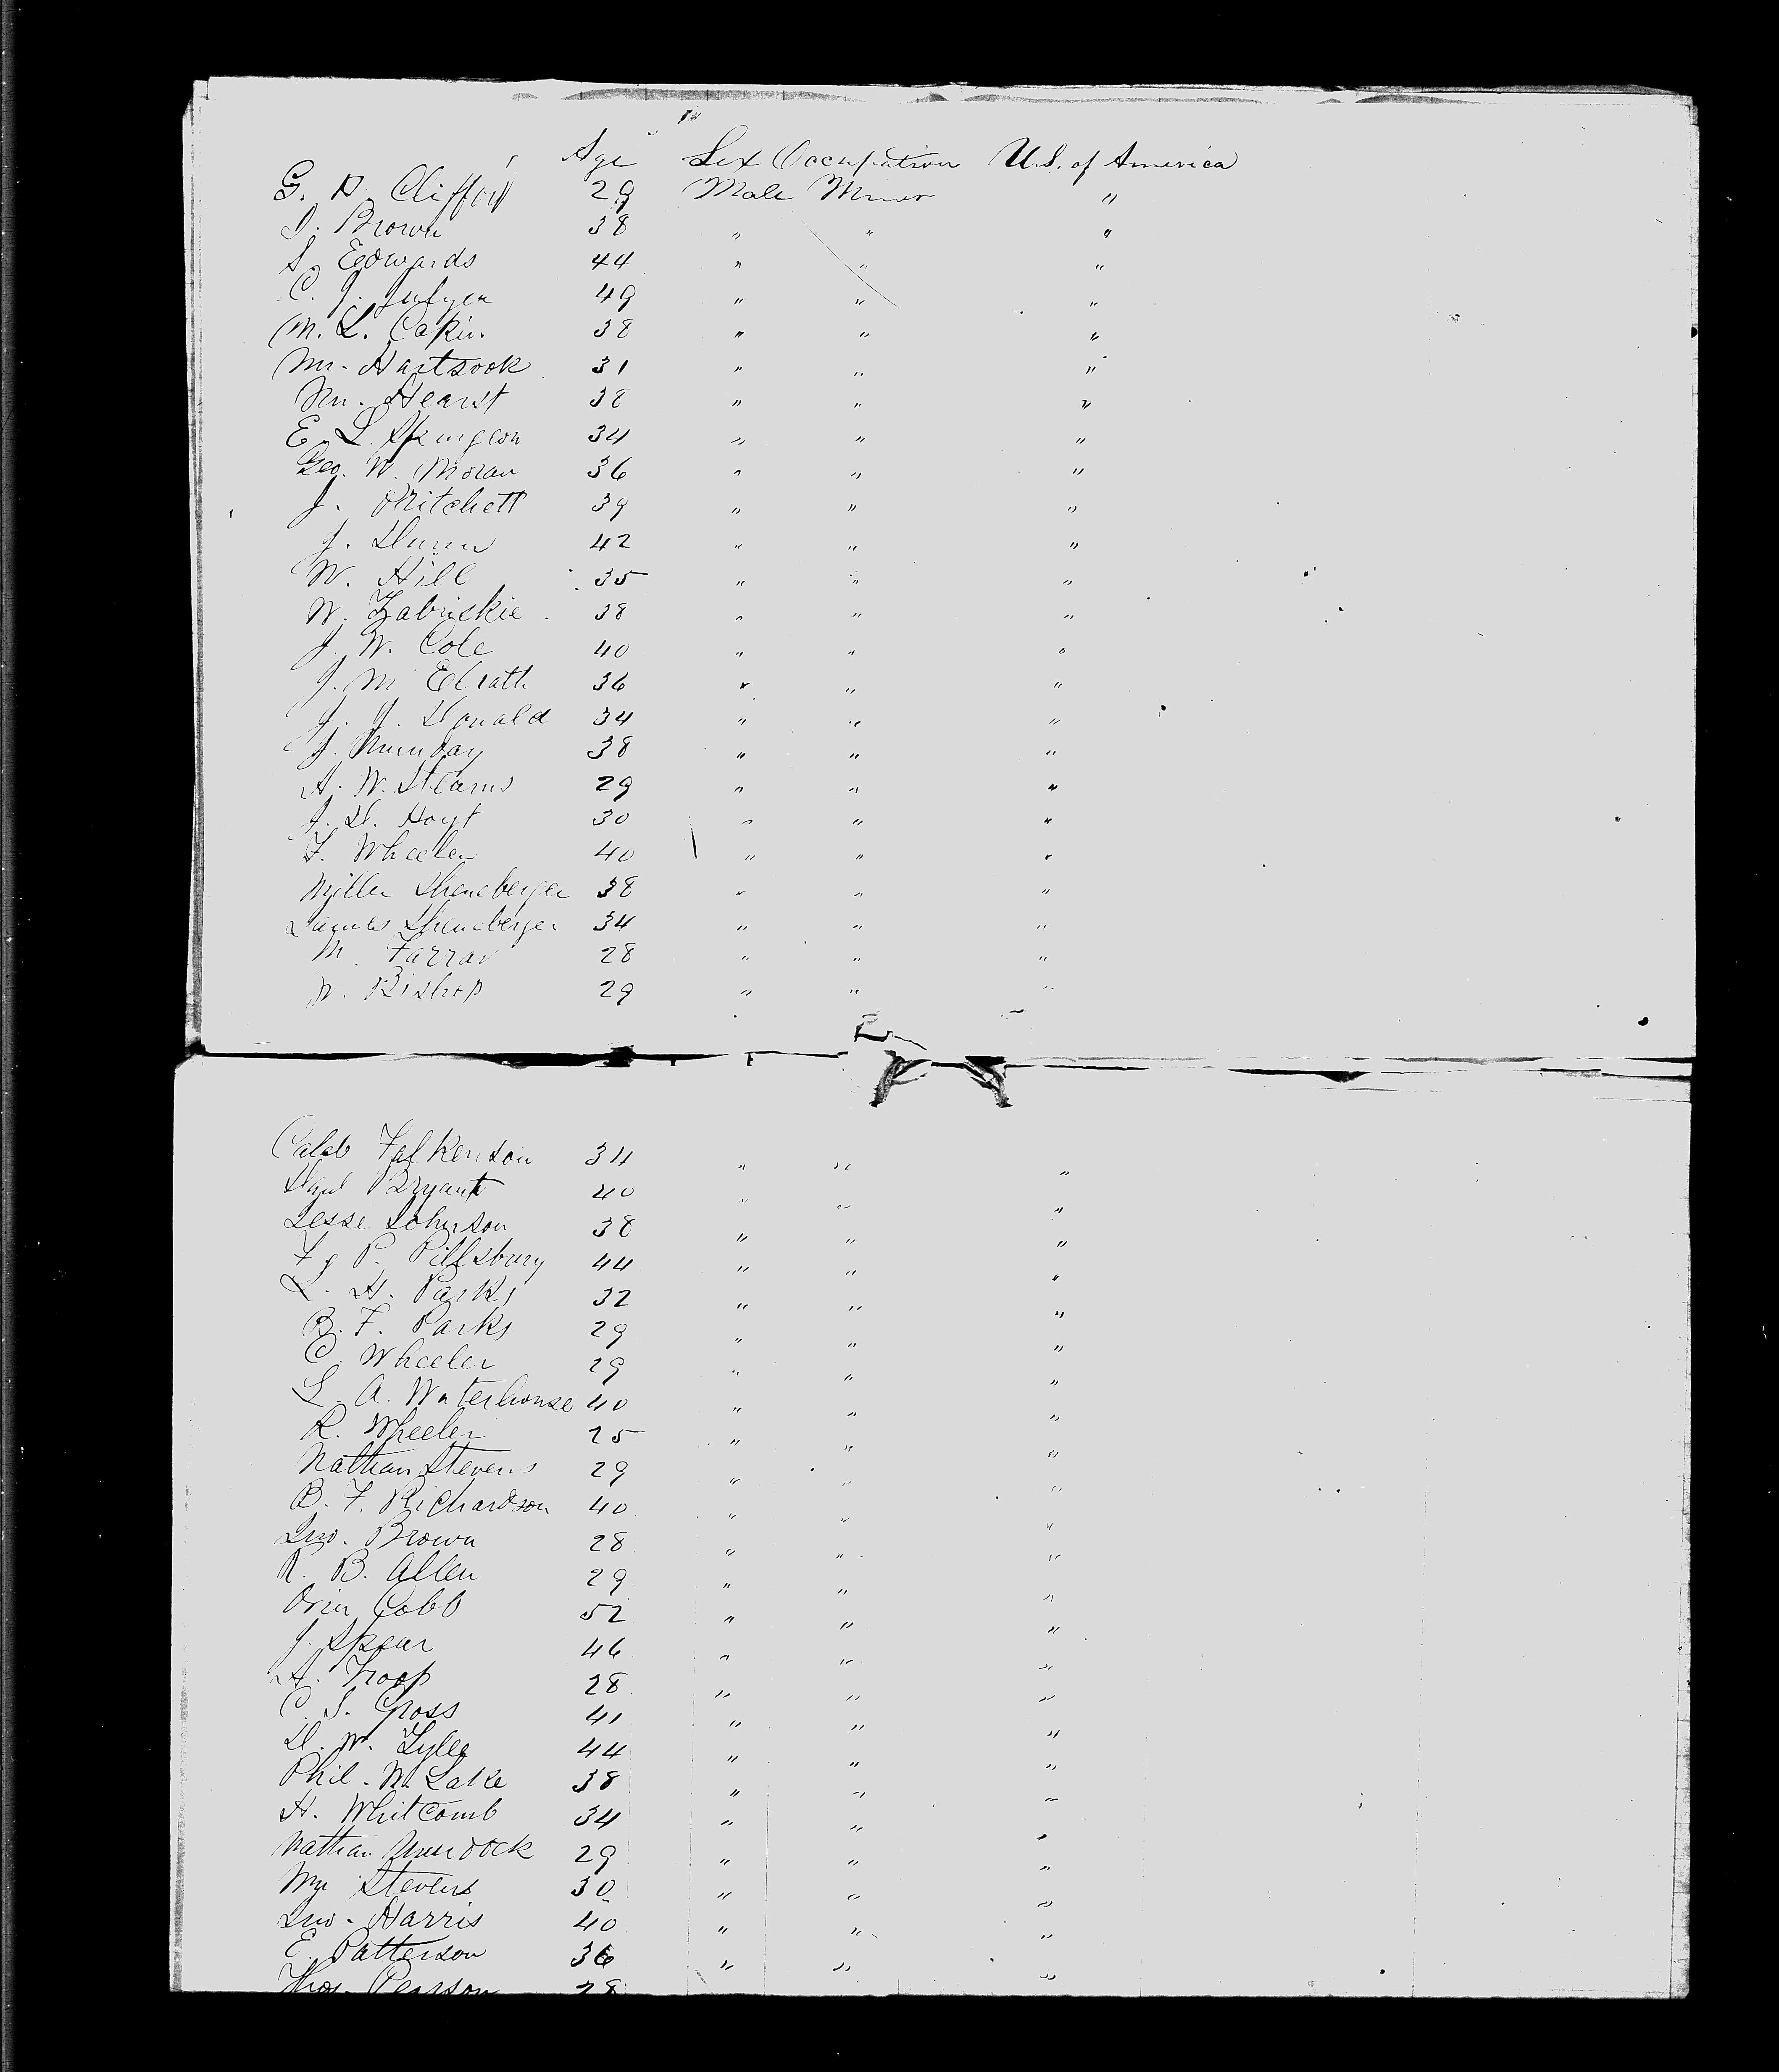 Age Sex Occupation U.S. of America
G. P. Clifford 29 Male Miner "
D. Brown 38 " " "
S. Edwards 44 " " "
C. J. 49 " " "
M. L. 38 " " "
Mr. Hartsook 31 " " "
Mr. Hearst 38 " " "
E. L. Spurgeon 34 " " "
Geo. W. Moran 36 " " "
J. Pritchett 39 " " "
J. Dunn 42 " " "
W. Hill 35 " " "
W. Zabriskie 38 " " "
J. W. Cole 40 " " "
J. Mc Elrath 36 " " "
J. J. Donald 34 " " "
J. Munday 38 " " "
A. W. Stearns 29 " " "
J. D. Hoyt 30 " " "
F. Wheeler 40 " " "
Miller Sheneberger 38 " " "
James Sheneberger 34 " " "
M. Farrar 28 " " "
W. Bishop 29 " " "
Caleb Falkenson 34 " " "
Danl Bryant 40 " " "
Jesse Johnson 38 " " "
P. Pillsbury 44 " " "
L. H. Parks 32 " " "
B. F. Parks 29 " " "
C. Wheeler 29 " " "
L. A. Waterhouse 40 " " "
R. Wheeler 25 " " "
Nathan Stevens 29 " " "
B. F. Richardson 40 " " "
Jno. Brown 28 " " "
R. B. Allen 29 " " "
Orin Cobb 52 " " "
J. Spear 46 " " "
A. Troop 28 " " "
C. S. Gross 41 " " "
D. W. Lyle 44 " " "
Phil. W. Lake 38 " " "
H. Whitcomb 34 " " "
Nathan Murdock 29 " " "
Wm Stevens 30 " " "
Jno. Harris 40 " " "
E. Patterson 36 " " "
Thos. Persson 28